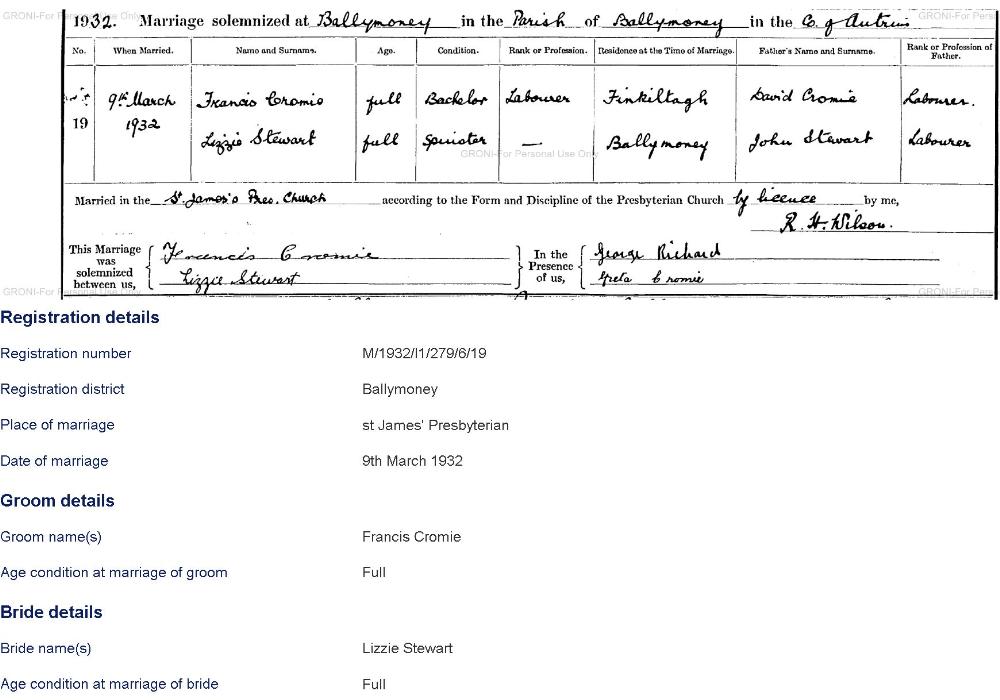 1932. Marriage solemnized at Ballymoney in the Parish of Ballymoney in the Co. of Antrim
No. When Married. Name and Surname. Age. Condition. Rank or Profession. Residence at the Time of Marriage. Father's Name and Surname. Rank or Profession of Father.
19 9th March 1932 Francis Cromie full Bachelor Labourer Finkiltagh David Cromie Labourer.
Lizzie Stewart full Spinster — Ballymoney John Stewart Labourer
GRONI-For Personal Use Only
Married in the St. James's Pres. Church according to the Form and Discipline of the Presbyterian Church by licence by me,
R. H. Wilson.
This Marriage was solemnized between us, { Francis Cromie } In the Presence of us, { George Richard
Lizzie Stewart Greta Cromie
GRONI-For Personal Use Only
Registration details
Registration number M/1932/I1/279/6/19
Registration district Ballymoney
Place of marriage st James' Presbyterian
Date of marriage 9th March 1932
Groom details
Groom name(s) Francis Cromie
Age condition at marriage of groom Full
Bride details
Bride name(s) Lizzie Stewart
Age condition at marriage of bride Full